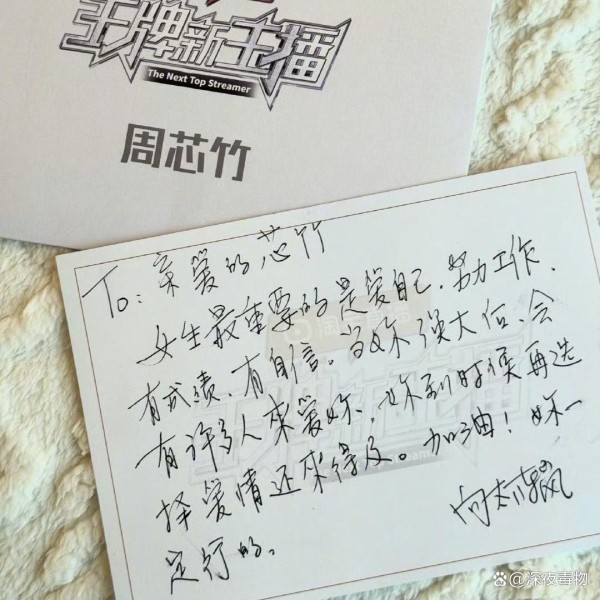 王牌新主播
The Next Top Streamer
周芯竹
To: 亲爱的芯竹
女生最重要的是爱自己.努力工作.
有成绩.有自信。当妳强大后、会
有许多人来爱妳.妳到时候再选
择爱情还来得及。加油！妳一
定行的。
向太陈岚
@深夜毒物